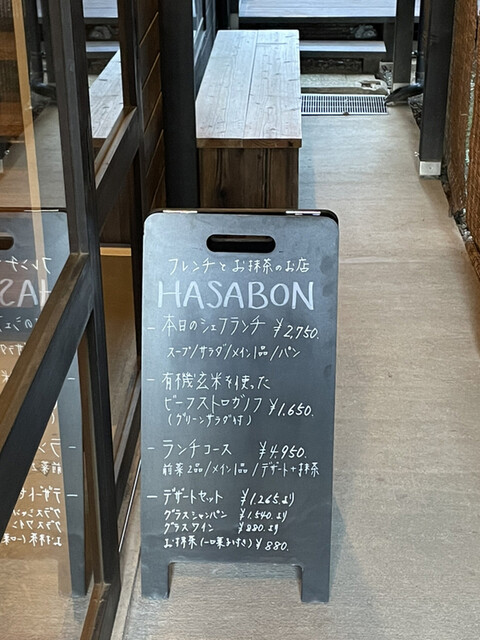 フレンチとお抹茶のお店
HASABON
- 本日のシェフランチ ¥2,750.
スープ/サラダ/メイン1品/パン
- 有機玄米を使った
ビーフストロガノフ ¥1,650.
(グリーンサラダ付)
- ランチコース ¥4,950.
前菜2品/メイン1品/デザート+抹茶
- デザートセット ¥1,265.より
グラスシャンパン ¥1,540.より
グラスワイン ¥880.より
お抹茶(一口菓子付き) ¥880.